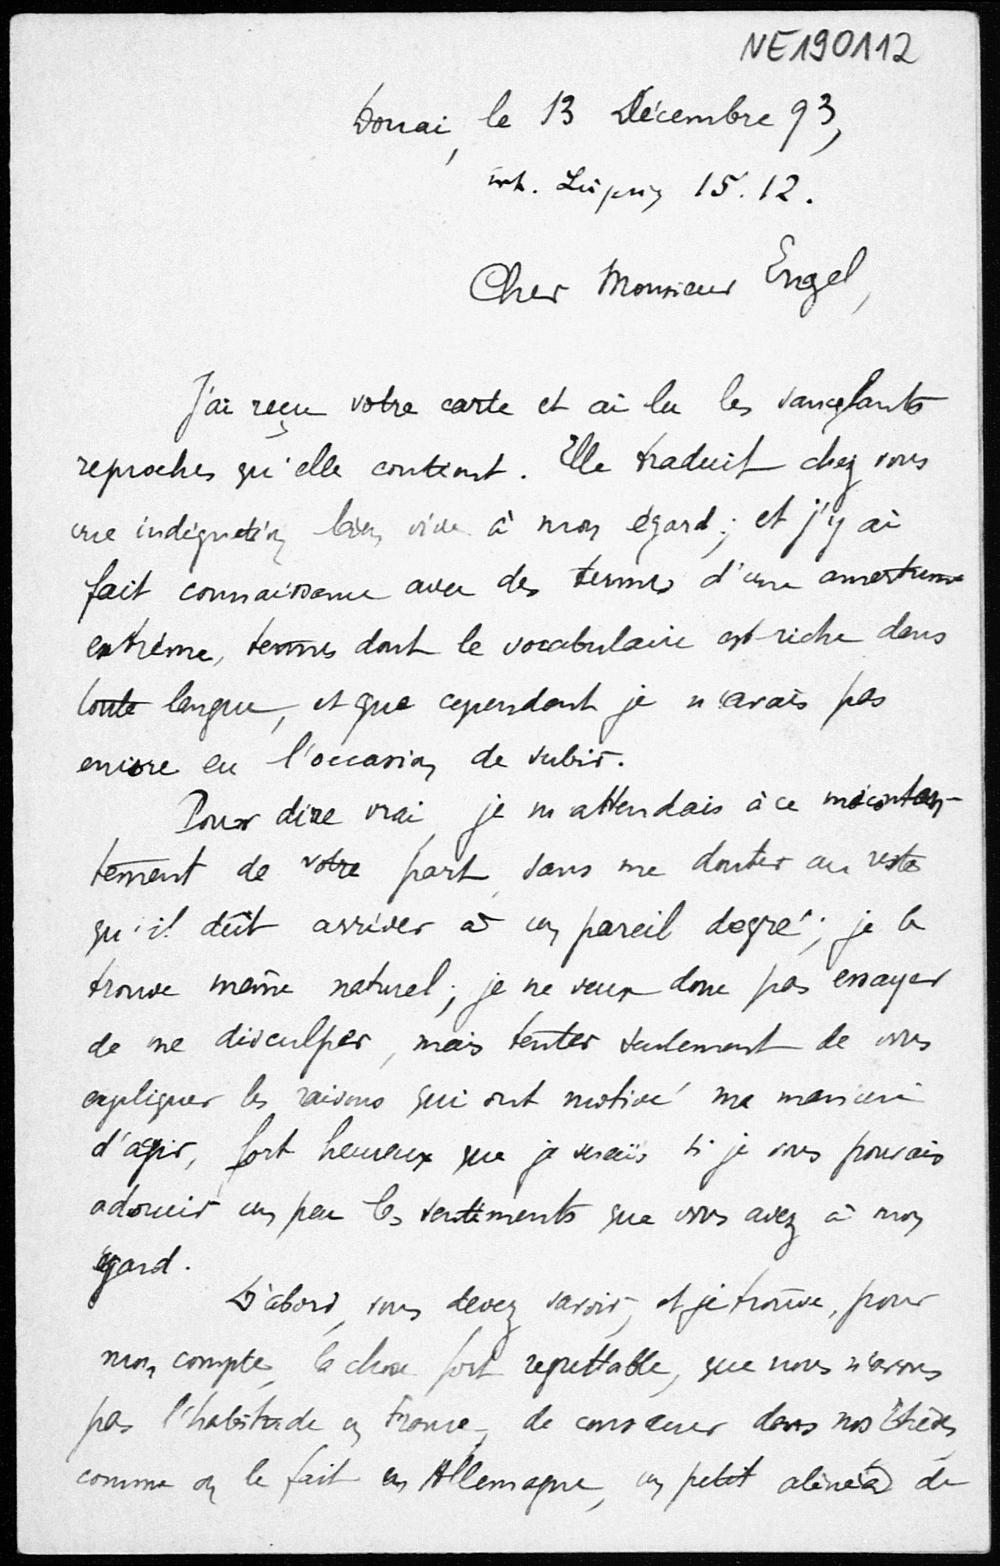 NE190112
Douai, le 13 Décembre 93,
erh. Leipzig 15.12.
Cher Monsieur Engel,
J'ai reçu votre carte et ai lu les sanglants
reproches qu'elle contient. Elle traduit chez vous
une indignation bien vive à mon égard; et j'y ai
fait connaissance avec des termes d'une amertume
extrême, termes dont le vocabulaire est riche dans
toute langue, et que cependant je n'avais pas
encore eu l'occasion de subir.
Pour dire vrai, je m'attendais à ce mécontent-
tement de votre part, sans me douter au reste
qu'il dût arriver à un pareil degré; je le
trouve même naturel; je ne veux donc pas essayer
de me disculper, mais tenter seulement de vous
expliquer les raisons qui ont motivé ma manière
d'agir, fort heureux que je serais si je vous pouvais
adoucir un peu les sentiments que vous avez à mon
égard.
D'abord, vous devez savoir, et je trouve, pour
mon compte, la chose fort regrettable, que nous n'avons
pas l'habitude en France, de consacrer dans nos thèses,
comme on le fait en Allemagne, un petit alinéa de